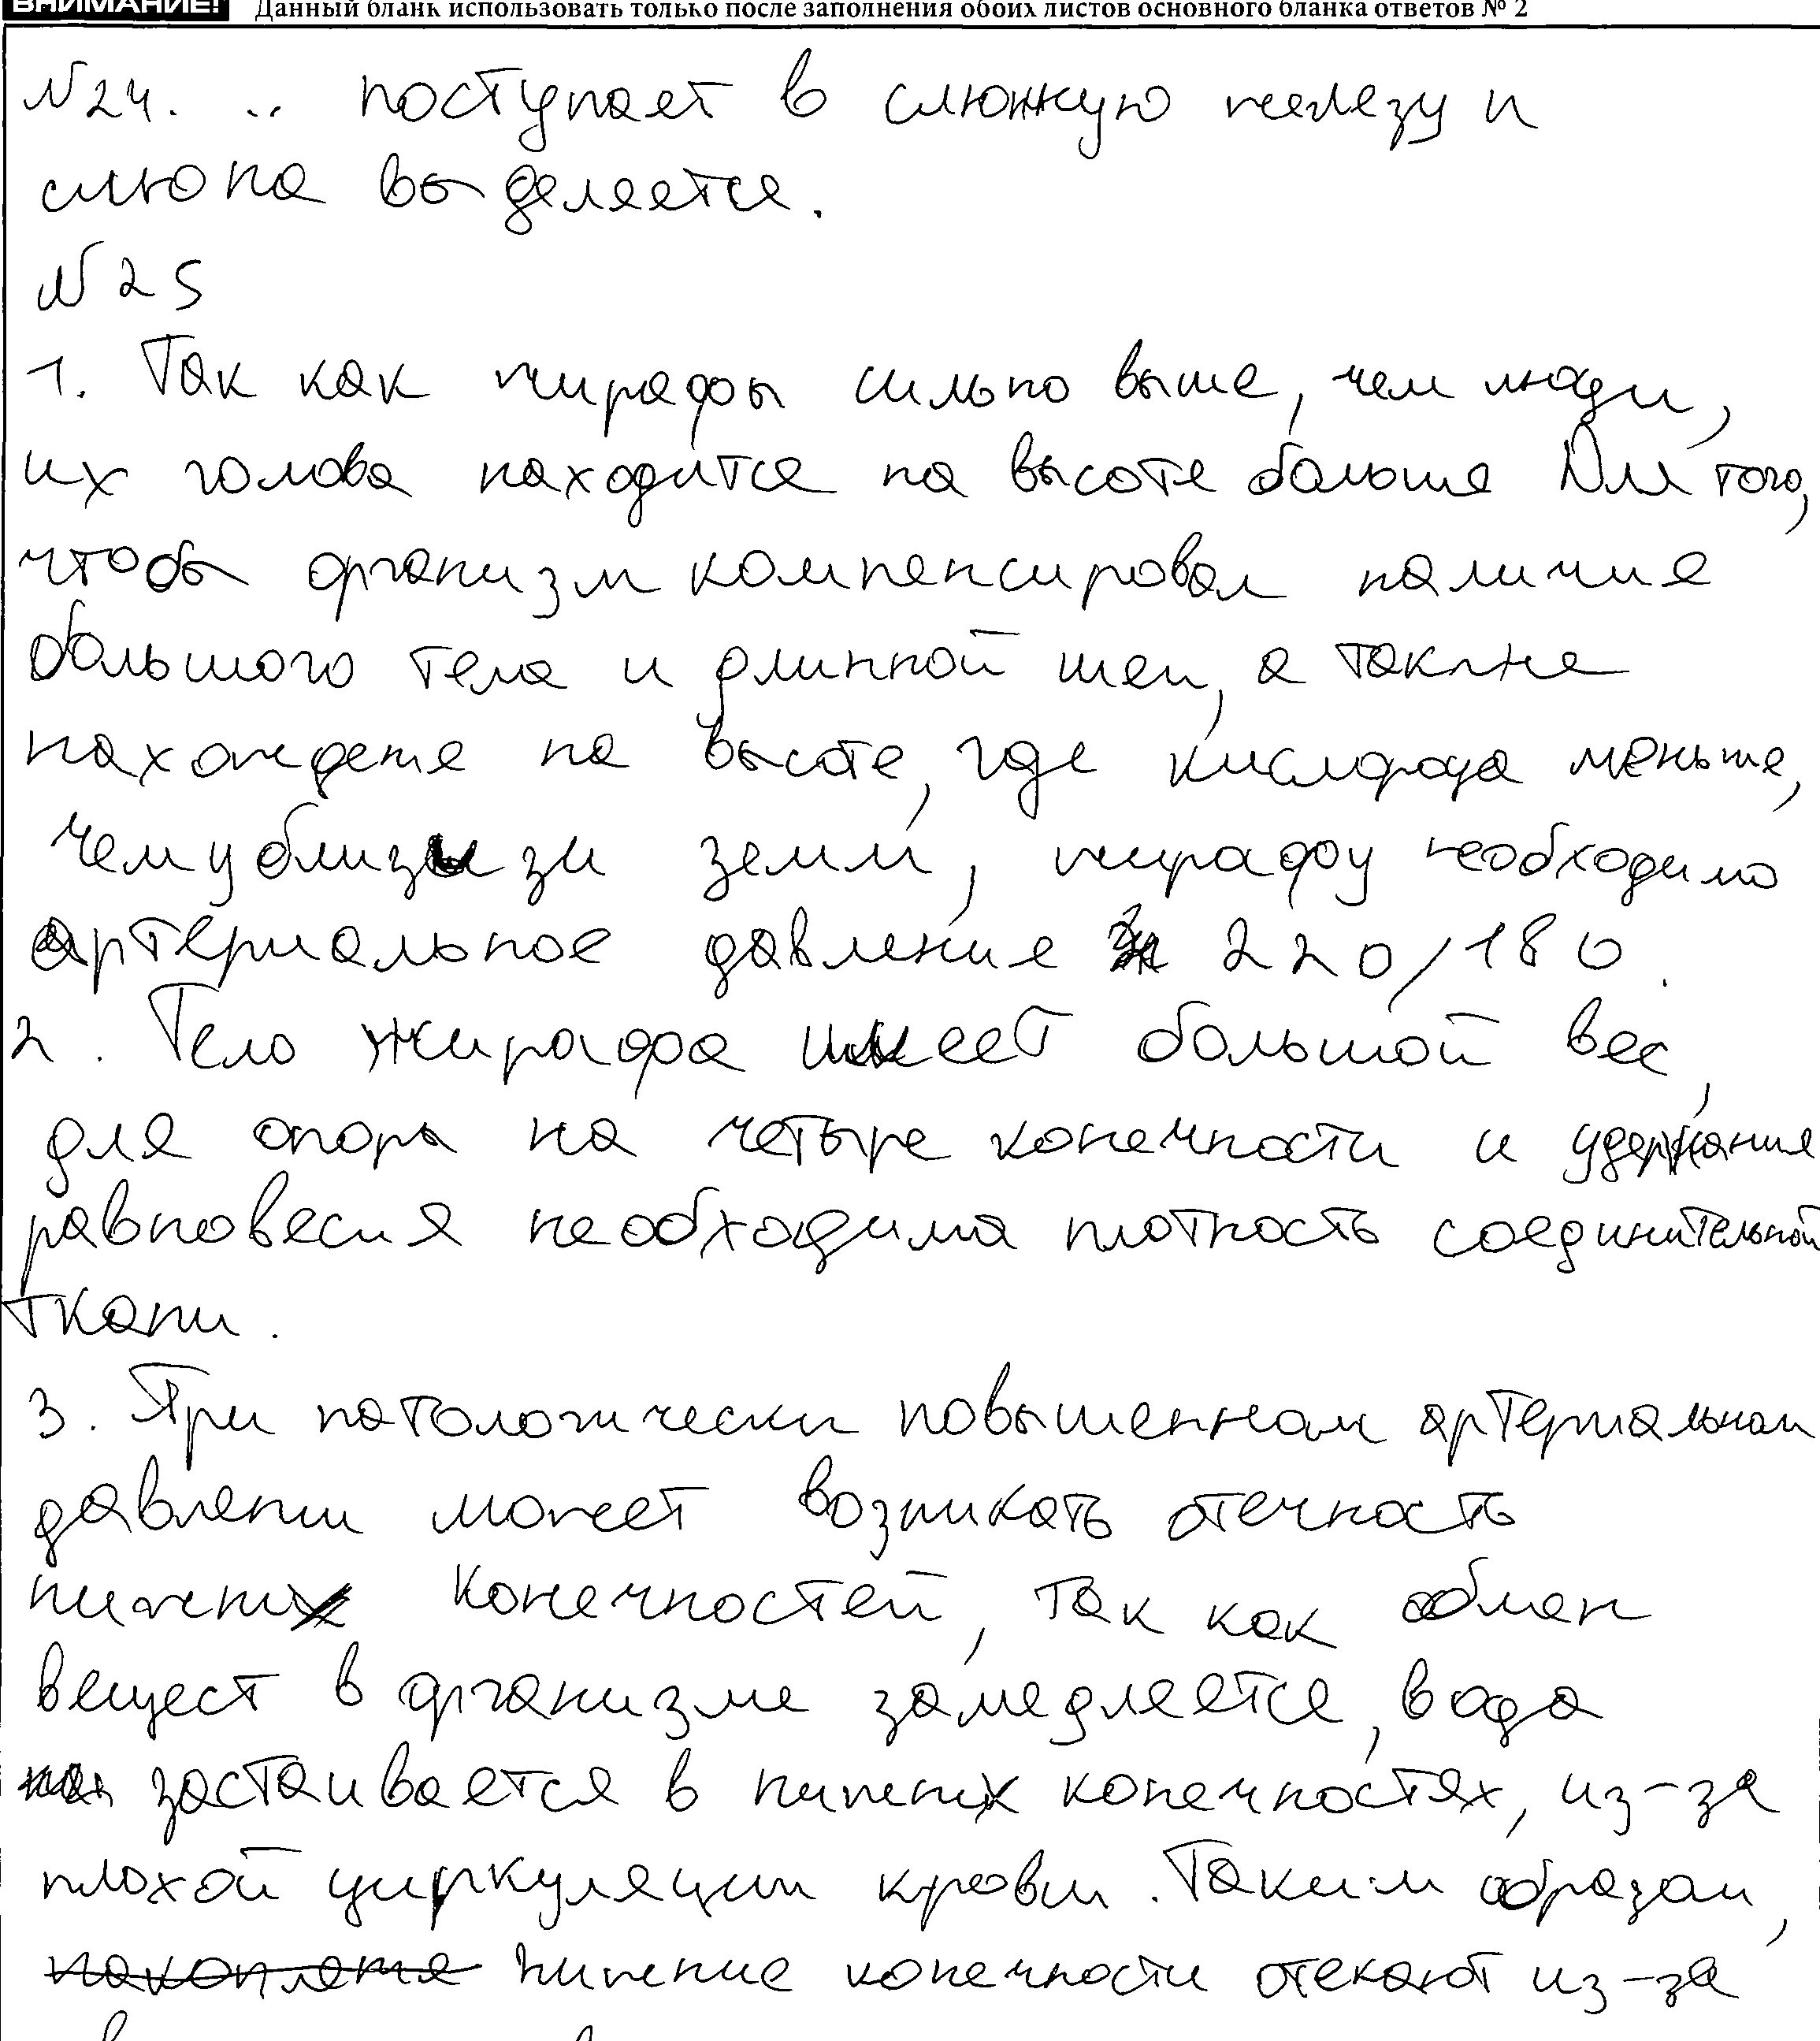 ВНИМАНИЕ! Данный бланк использовать только после заполнения обоих листов основного бланка ответов № 2
№24. .. поступает в слюнную железу и
слюна выделяется.
№25
1. Так как жирафы сильно выше, чем люди,
их голова находится на высоте больше Для того,
чтобы организм компенсировал наличие
большого тела и длинной шеи, а также
нахождене на высоте, где кислорода меньше,
чем у близи зи земли, жирафу необходимо
артериальное давление 220/180.
2. Тело жирафа имеет большой вес,
для опоры на четыре конечности и удержания
равновесия необходима плотность соединительной
ткани.
3. При патологически повышенном артериальном
давлении может возникать отечность
нижних конечностей, так как обмен
вещест в организме замедляется, вода
застаивается в нижних конечностях, из-за
плохой циркуляции крови. Таким образом,
накоплене нижние конечности отекают из-за